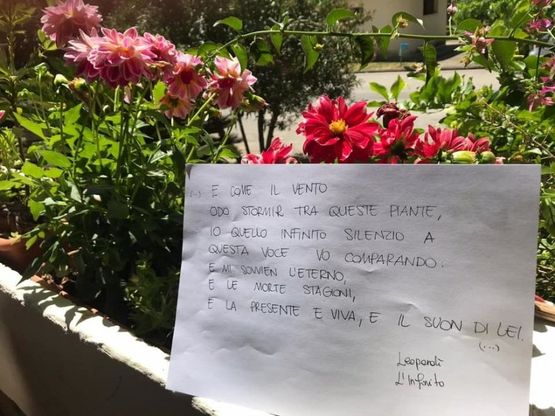 (...) E COME IL VENTO
ODO STORMIR TRA QUESTE PIANTE,
IO QUELLO INFINITO SILENZIO A
QUESTA VOCE VO COMPARANDO:
E MI SOVVIEN L'ETERNO,
E LE MORTE STAGIONI,
E LA PRESENTE E VIVA, E IL SUON DI LEI.
(...)
Leopardi
L'Infinito